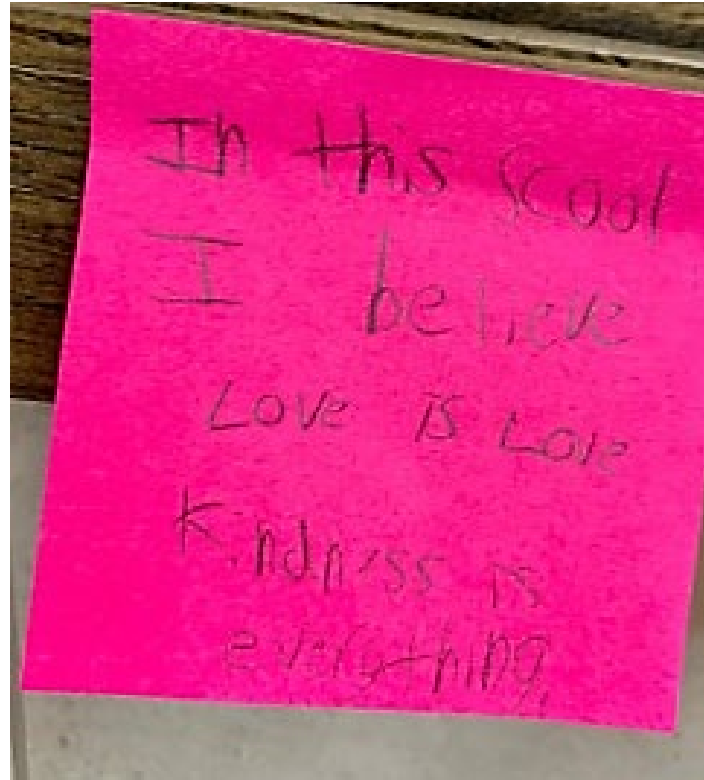 In this scool
I believe
Love is Love
Kindness is
everything.